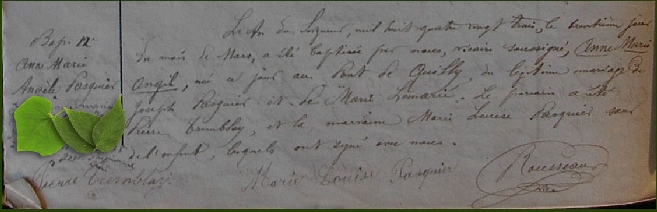 Bap. 12
Anne Marie
Angèle Pasquier
L'An du Seigneur, mil huit quatre vingt trois, le trentième jour
du mois de Mars, a été baptisée par nous, vicaire soussigné, Anne Marie
Angèl, née ce jour au Pont de Quilly, du légitime mariage de
Joseph Pasquier et de Marie Lemarié. Le parrain a été
Pierre Tremblay, et la marraine Marie Louise Pasquier sœur
de l'enfant, lesquels ont signé avec nous.
Pierre Tremblay
Marie Louise Pasquier
Rousseau